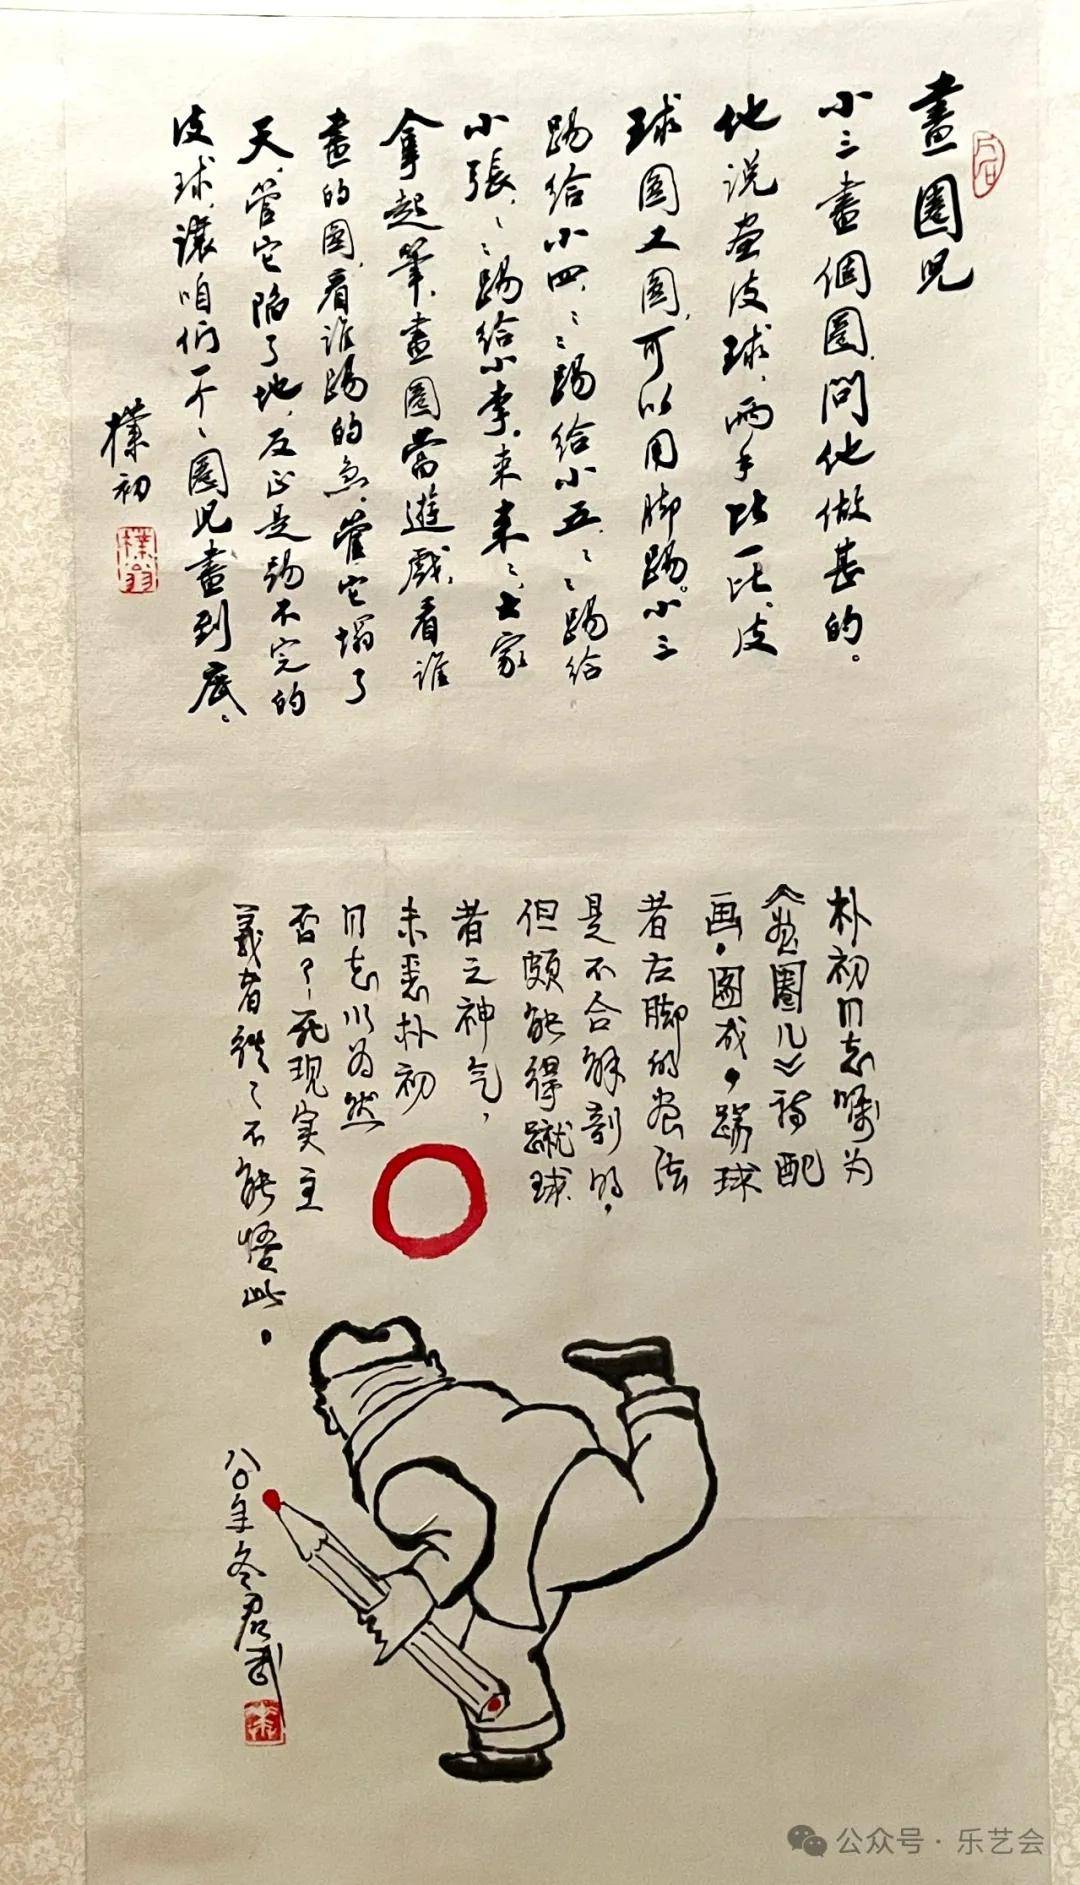 畫圈兒
小三畫個圈,問他做甚的。
他说畫皮球,两手比一比,皮
球圆又圆,可以用脚踢。小三
踢给小四,〻〻踢给小五,〻〻踢给
小張,〻〻踢给小李。来来〻,大家
拿起筆,畫圈當遊戲,看谁
畫的圆,看谁踢的急。管它塌了
天,管它陷了地,反正是踢不完的
皮球,讓咱们一个〻圈兒畫到底。
樸初
樸翁
朴初同志嘱为
《畫圈儿》诗配
画,图成,踢球
者左脚的畫法
是不合解剖的,
但颇能得蹴球
者之神气,
未悉朴初
同志以为然
否?死现实主
義者往〻不能悟此。
八〇年冬君武
公众号·乐艺会